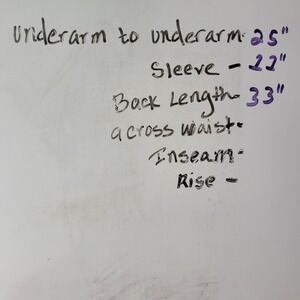 underarm to underarm- 25"
Sleeve - 22"
Back Length- 33"
across waist-
Inseam-
Rise -